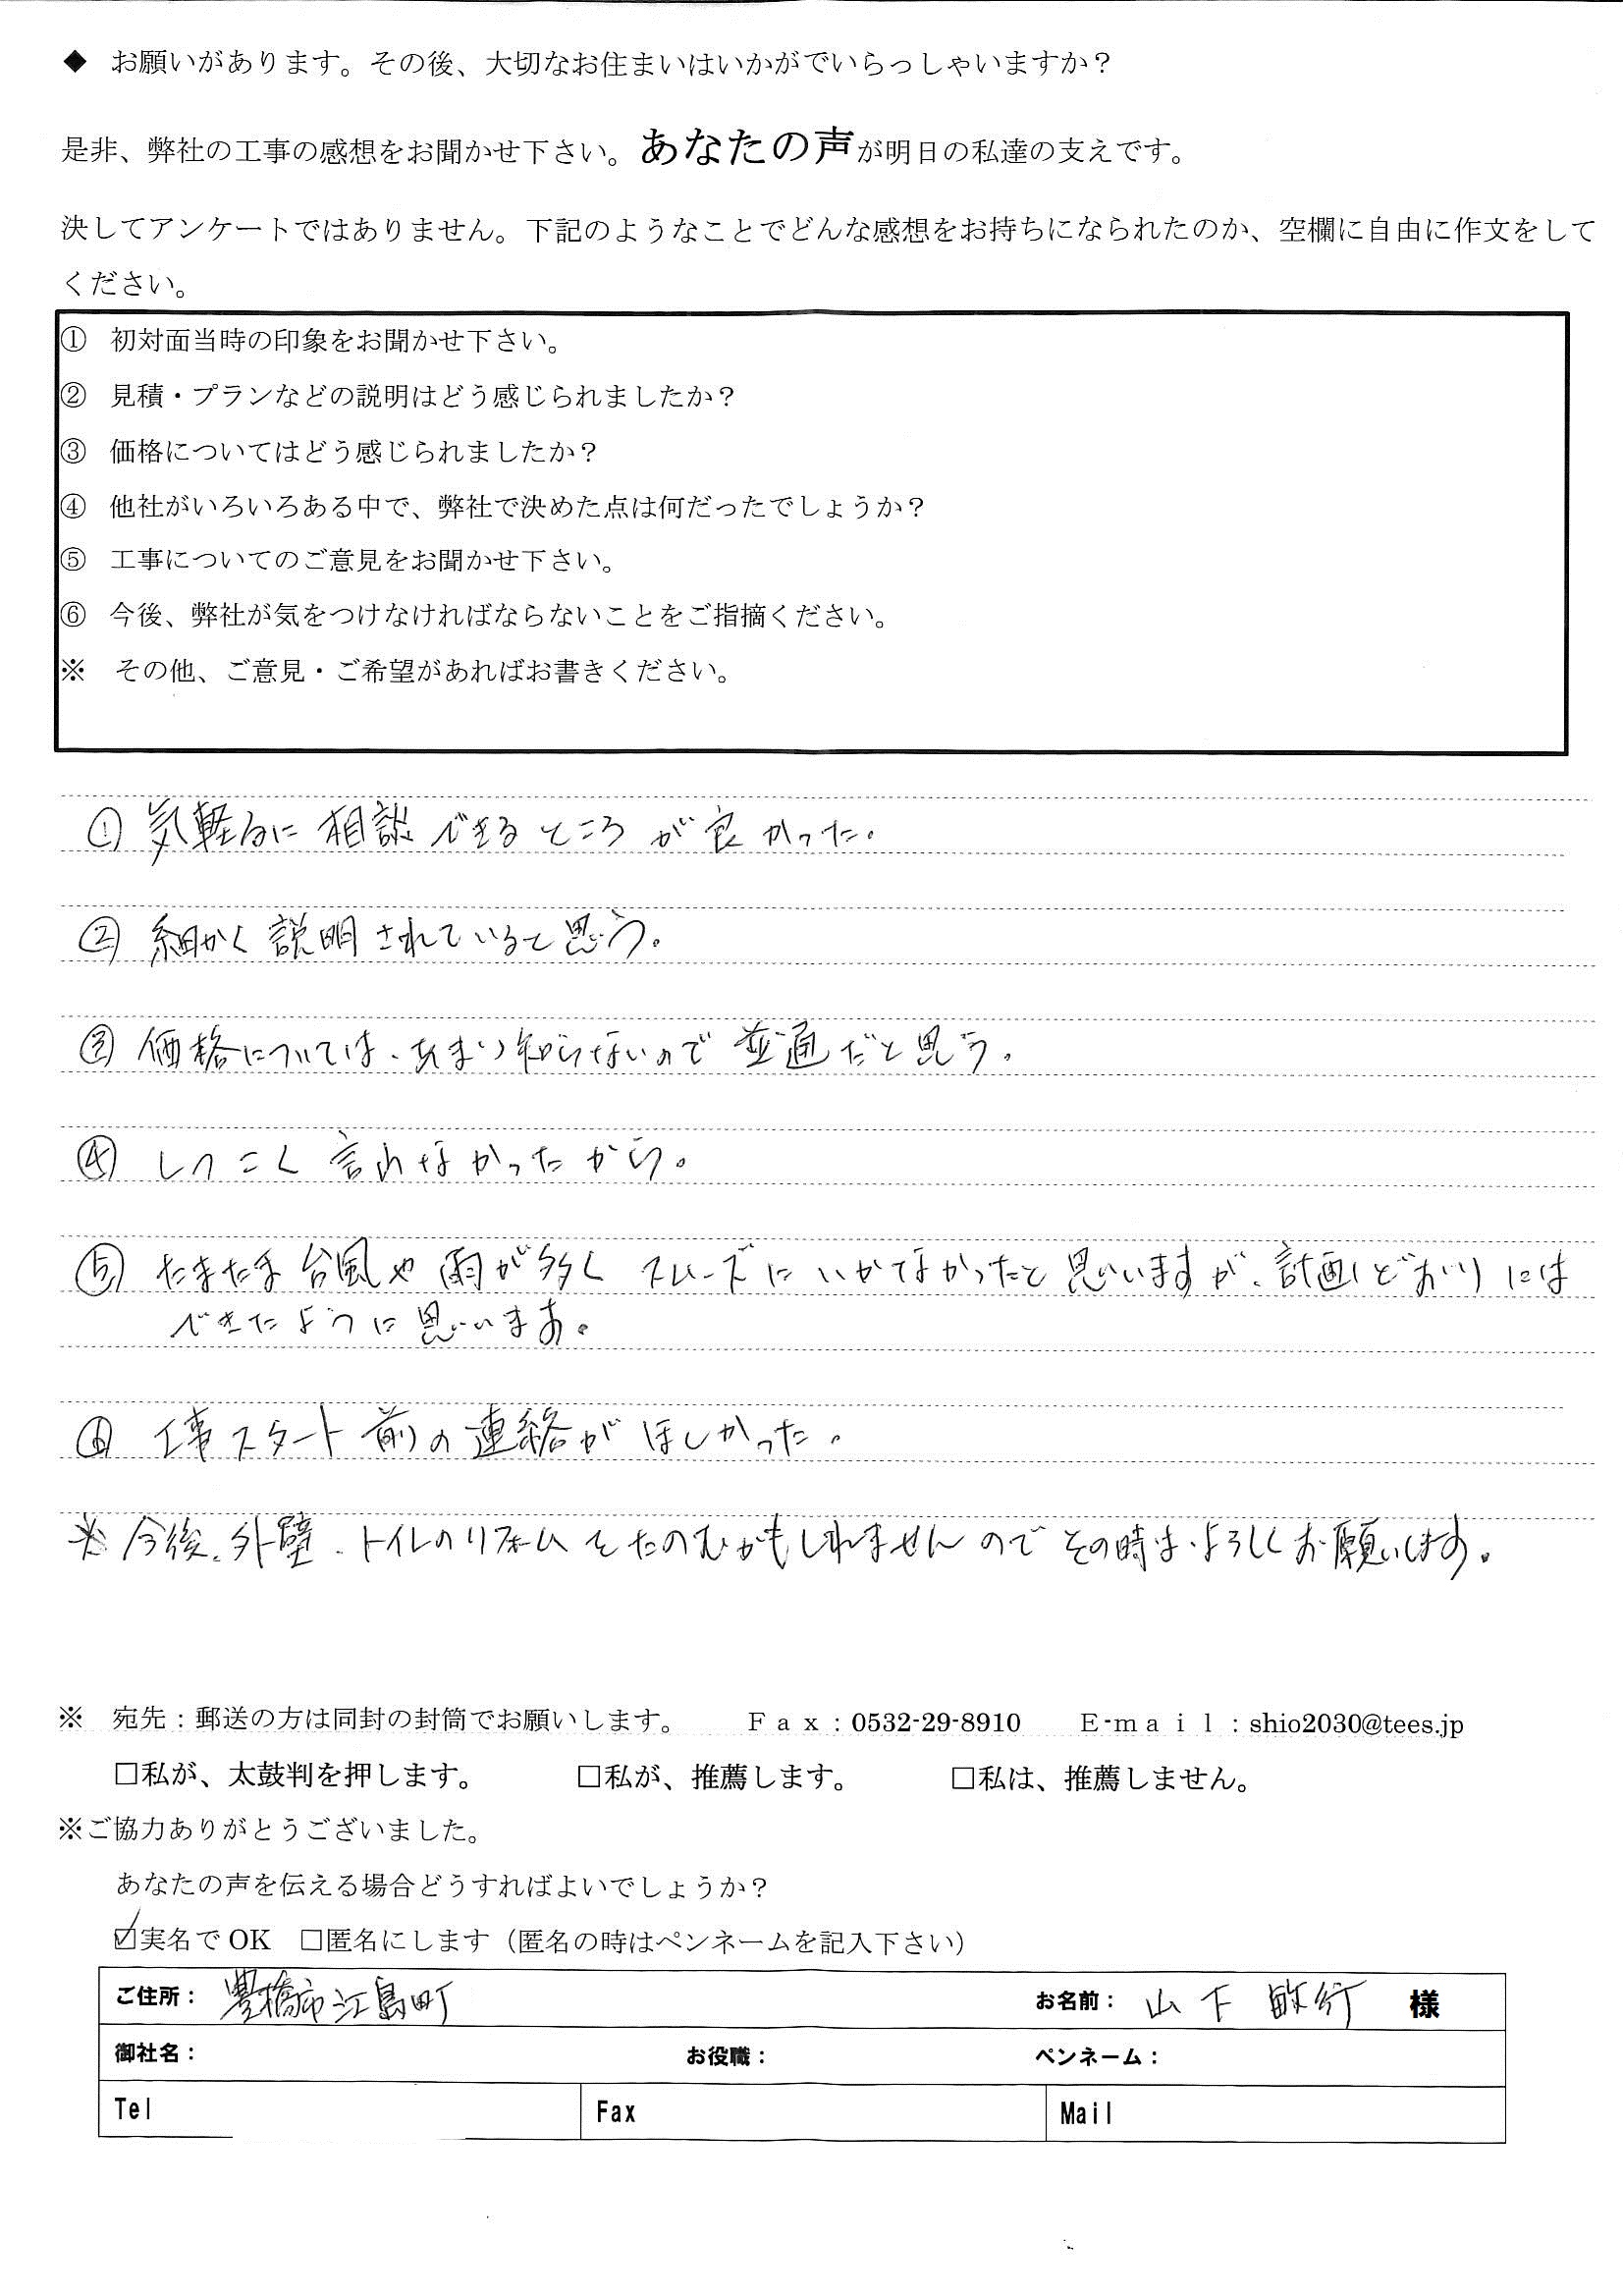 ◆ お願いがあります。その後、大切なお住まいはいかがでいらっしゃいますか？
是非、弊社の工事の感想をお聞かせ下さい。あなたの声が明日の私達の支えです。
決してアンケートではありません。下記のようなことでどんな感想をお持ちになられたのか、空欄に自由に作文をして
ください。
① 初対面当時の印象をお聞かせ下さい。
② 見積・プランなどの説明はどう感じられましたか？
③ 価格についてはどう感じられましたか？
④ 他社がいろいろある中で、弊社で決めた点は何だったでしょうか？
⑤ 工事についてのご意見をお聞かせ下さい。
⑥ 今後、弊社が気をつけなければならないことをご指摘ください。
※ その他、ご意見・ご希望があればお書きください。
① 気軽るに相談できるところが良かった。
② 細かく説明されていると思う。
③ 価格については、あまり知らないので並通だと思う。
④ しつこく言れなかったから。
⑤ たまたま台風や雨が多くスムーズにいかなかったと思いますが、計画どおりには
できたように思います。
⑥ 工事スタート前の連絡がほしかった。
※ 今後、外壁、トイレのリフォームをたのむかもしれませんのでその時は、よろしくお願いします。
※ 宛先：郵送の方は同封の封筒でお願いします。 Ｆａｘ：0532-29-8910 Ｅ-ｍａｉｌ：shio2030@tees.jp
□私が、太鼓判を押します。 □私が、推薦します。 □私は、推薦しません。
※ご協力ありがとうございました。
あなたの声を伝える場合どうすればよいでしょうか？
☑実名で OK □匿名にします（匿名の時はペンネームを記入下さい）
ご住所： 豊橋市江島町 お名前： 山下 敏行 様
御社名： お役職： ペンネーム：
Tel Fax Mail